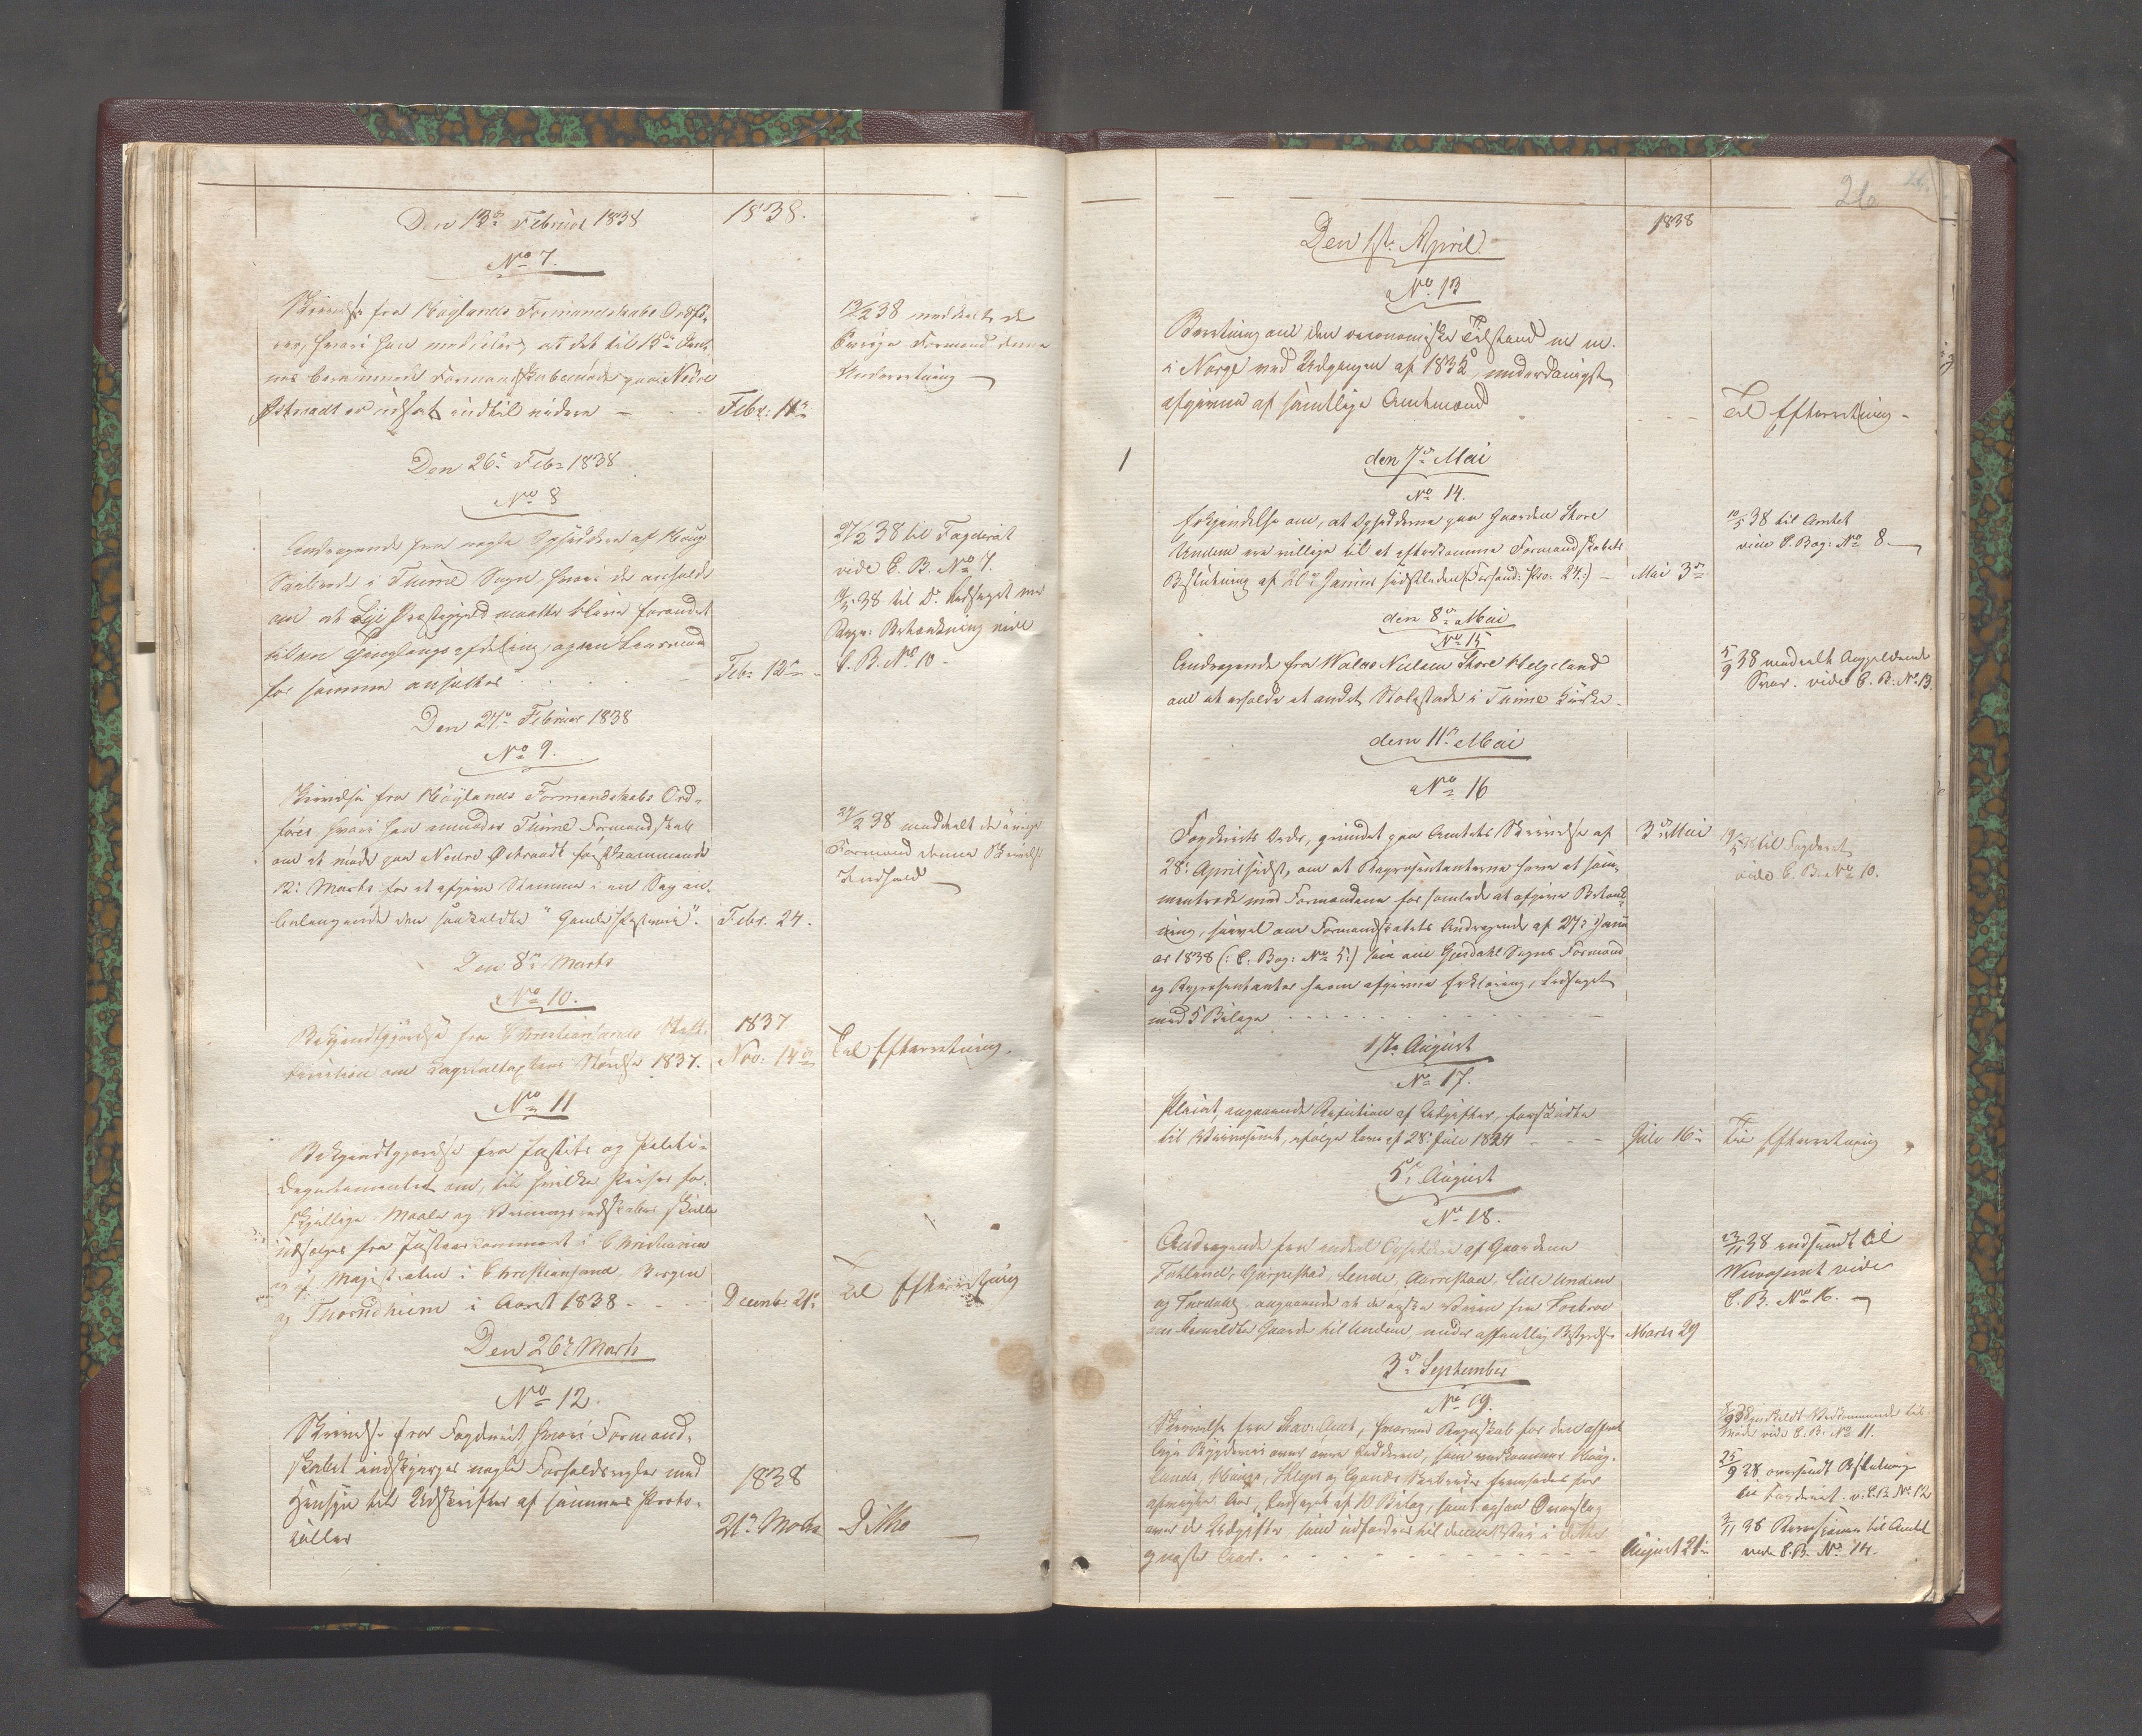 Den 13de Februar 1838
1838.
No 7.
Skrivelse fra Høylands Formandskabs Ordfø-
rer, hvori han melder, at det til 15de
berammede Formandskabsmøde paa Nedre
Østraadt er udsat indtil videre —
Febr: 11te
13/2 38 meddeelt de
øvrige Formænd denne
Underretning
Den 26de Febr 1838
No 8
Andragende fra nogle Opsiddere af Houge
Skibrede i Thime Sogn, hvori de anholde
om at Lye Præstegjeld maatte blive forandret
til en Thinglaugs afdeling, og en Leensmand
for samme ansættes
Feb: 12te
27/2 38 til Fogderiet
vide C. B. No 7.
38 til Do ledsaget med
Repr: Betænkning vide
C. B. No 10 -
Den 27de Februar 1838
No 9.
Skrivelse fra Høylands Formandskabs Ord-
fører hvori han anmoder Thime Formandskab
om at møde paa Nedre Østraadt førstkommende
12te Marts for at afgive Stemme i en Sag an-
belangende den saakaldte "Gamle Postvei".
Febr. 24.
27/2 38 meddeelt de øvrige
Formænd denne Skrivelses
Indhold
Den 8de Marts
No 10.
Bekjendtgjørelse fra Christiansands Stift-
direction om Capitaltaxtens Størrelse 1837.
1837
Nov: 14de
Til Efterretning.
No 11
Bekjendtgjørelse fra Justits og Politi-
Departementet om, til hvilke Priser for-
skjellige Maale og Veiningsredskaber skulle
udsælges fra Justeerkammeret i Christiania
og af Magistraten i Christiansand, Bergen
og Throndhiem i Aaret 1838 -
Decemb: 21de
Til Efterretning
Den 26de Marts
No 12.
Skrivelse fra Fogderiet hvori Formand-
skabet indskjerpes nogle Forholdsregler med
Hensyn til Udskrifter af sammes Proto-
coller
1838
21de Marts
Ditto
26
1838
Den 1ste April
No 13
Beretning om den oeconomiske Tilstand m m.
i Norge ved Udgangen af 1835, underdanigst
afgivne af samtlige Amtmænd
Til Efterretning -
1
den 7de Mai
No 14.
Erkjendelse om, at Opsidderne paa Gaarden Store
Undem ere villige til at efterkomme Formandskabets
Beslutning af 20de Januar sidstleden (Forhand: Pro: 24:) -
Mai 3de
10/5 38 til Amtet
vide C. Bog: No 8.
den 8de Mai
No 15
Andragende fra Store Helgeland
om at erholde et andet Stolestade i Thime Kirke.
5/9 38 meddeelt Angjeldende
Svar. vide C. B: No 13.
den 11te Mai
No 16
Fogderiets Ordre, grundet paa Amtets Skrivelse af
28de April sidst, om at Repræsentanterne have at sam-
mentræde med Formændene for samlede at afgive Betænk-
ning, saavel om Formandskabets Andragende af 27de Janu
ar 1838 (: C. Bog: No 5:) som om Gjesdahl Sogns Formænd
og Repræsentanter herom afgivne Erklæring, ledsaget
med 5 Bilage
3de Mai
19/5 38 til Fogderiet
vide C. B. No 10.
1ste August
No 17.
Placat angaaende Refusion af Udgifter, forskudte
til Veivæsenet, ifølge Lov af 28de Juli 1824
Julv 16de
Til Efterretning
5te August
No 18.
Andragende fra endeel Opsiddere af Gaardene
Fotland, Garpestad, Lende, Aarrestad, Lille Undem
og Tærdahl, angaaende at de ønske Veien fra Fosbroe
over bemeldte Gaarde til Undem, under offentlig Bestyrelse
Marts 29
23/11 38 indsendt til
Veivæsenet vide
C. B. No 16.
3de September
No 19.
Skrivelse fra Stav: Amt, hvormed Regnskab for den offent
lige Bygdevei over Lædderen, som vedkommer Houg-
lands, Houge, Skeies og Gands Skibreder fremsendes for
afvigte Aar, ledsaget af 10 Bilag, samt ogsaa Overslag
over de Udgifter som udfordres til denne Vei i dette
og næste Aar.
August 21de
8/9 38 Vedkommende til
Møde vide C. B. No 11.
25/9 38 oversendt Beslutning
til Fogderiet. v. C. B. No 12
3/11 38 Revisionen til Amtet
vide C. B. No 14.